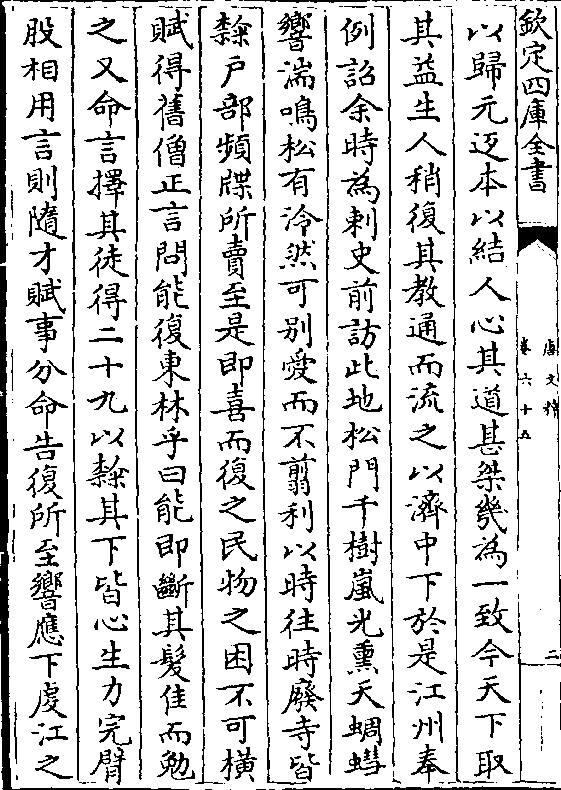 欽定四庫全書
唐文粹
卷六十五
二
以歸元返本以結人心其道甚桀幾為一致今天下取
其益生人稍復其教通而流之以濟中下於是江州奉
例詔余時為刺史前訪此地松門千樹嵐光熏天蜩螗
響湍鳴松有泠然可別愛而不翦利以時往時廢寺皆
隸戶部頻牒所賣至是即喜而復之民物之困不可橫
賦得舊僧正言問能復東林乎曰能即斷其髮隹而勉
之又命言擇其徒得二十九以隸其下皆心生力完臂
股相用言則隨才賦事分命告復所至響應下虔江之